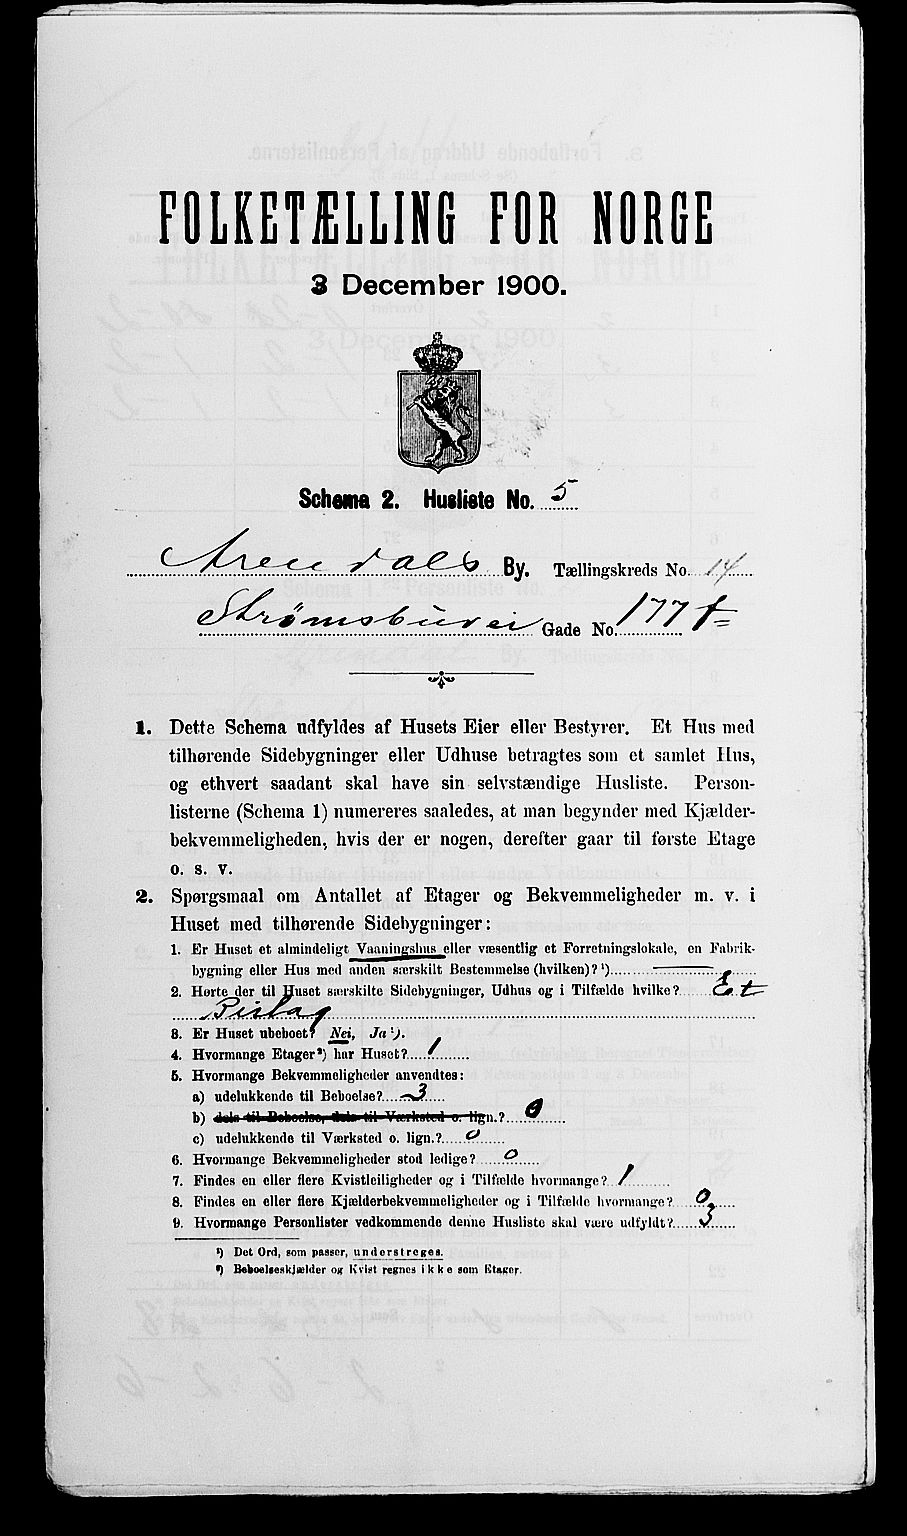 FOLKETÆLLING FOR NORGE
3 December 1900.
Schema 2. Husliste No. 5
Arendals By. Tællingskreds No. 14
Strømsbuvei Gade No. 177 f
1. Dette Schema udfyldes af Husets Eier eller Bestyrer. Et Hus med
tilhørende Sidebygninger eller Udhuse betragtes som et samlet Hus,
og ethvert saadant skal have sin selvstændige Husliste. Person-
listerne (Schema 1) numereres saaledes, at man begynder med Kjælder-
bekvemmeligheden, hvis der er nogen, derefter gaar til første Etage
o. s. v.
2. Spørgsmaal om Antallet af Etager og Bekvemmeligheder m. v. i
Huset med tilhørende Sidebygninger:
1. Er Huset et almindeligt Vaaningshus eller væsentlig et Forretningslokale, en Fabrik-
bygning eller Hus med anden særskilt Bestemmelse (hvilken)?¹)
2. Hørte der til Huset særskilte Sidebygninger, Udhus og i Tilfælde hvilke? Et
Bislag
3. Er Huset ubeboet? Nei, Ja¹).
4. Hvormange Etager²) har Huset? 1
5. Hvormange Bekvemmeligheder anvendtes:
a) udelukkende til Beboelse? 3
b) dels til Beboelse, dels til Værksted o. lign.? 0
c) udelukkende til Værksted o. lign.? 0
6. Hvormange Bekvemmeligheder stod ledige? 0
7. Findes en eller flere Kvistleiligheder og i Tilfælde hvormange? 1
8. Findes en eller flere Kjælderbekvemmeligheder og i Tilfælde hvormange? 0
9. Hvormange Personlister vedkommende denne Husliste skal være udfyldt? 3
¹) Det Ord, som passer, understreges.
²) Beboelseskjælder og Kvist regnes ikke som Etager.